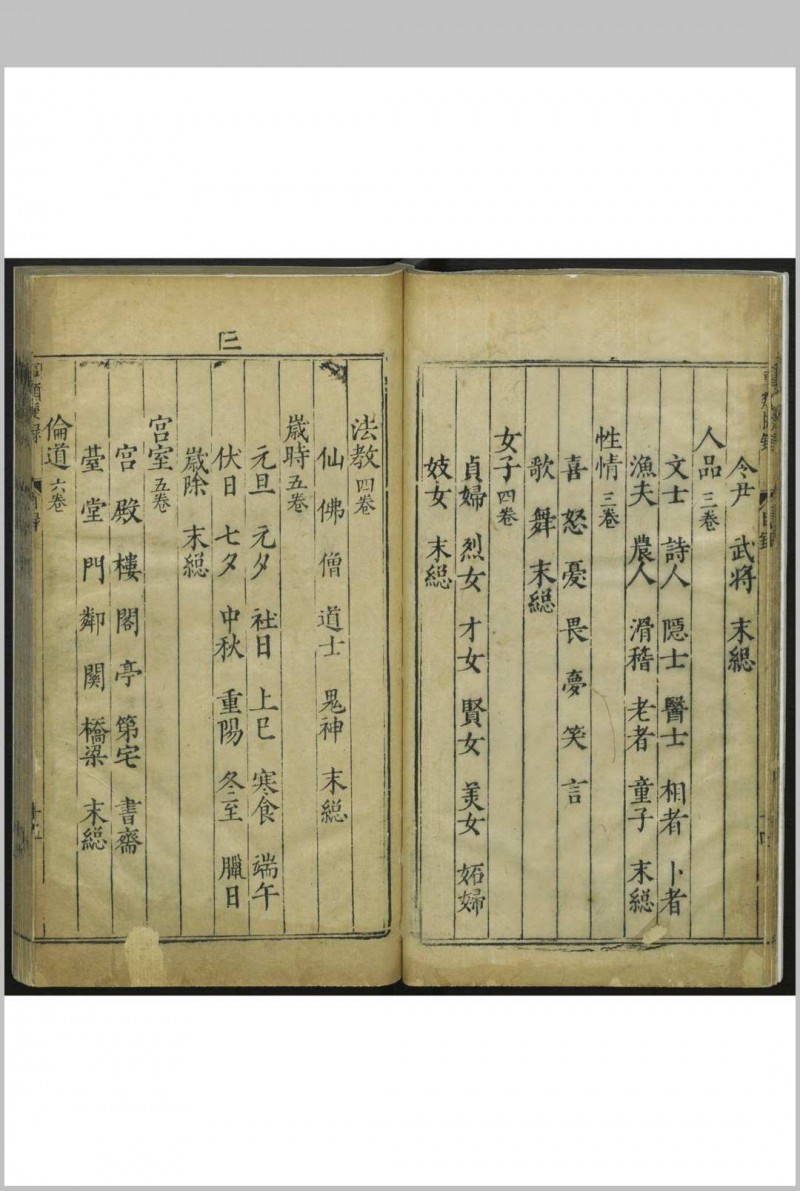 令尹 武将 末総
人品 三卷
文士 詩人 隠士 醫士 相者 卜者
漁夫 農人 滑稽 老者 童子 末総
性情 三卷
喜 怒 憂 畏 夢 笑 言
歌 舞 末総
女子 四卷
貞婦 烈女 才女 賢女 美女 妬婦
妓女 末総
三
法教 四卷
仙 佛 僧 道士 鬼神 末総
歳時 五卷
元旦 元夕 社日 上巳 寒食 端午
伏日 七夕 中秋 重陽 冬至 臘日
歳除 末総
宫室 五卷
宫 殿 樓 閣 亭 第宅 書齋
臺 堂 門 鄰 関 橋梁 末総
倫道 六卷